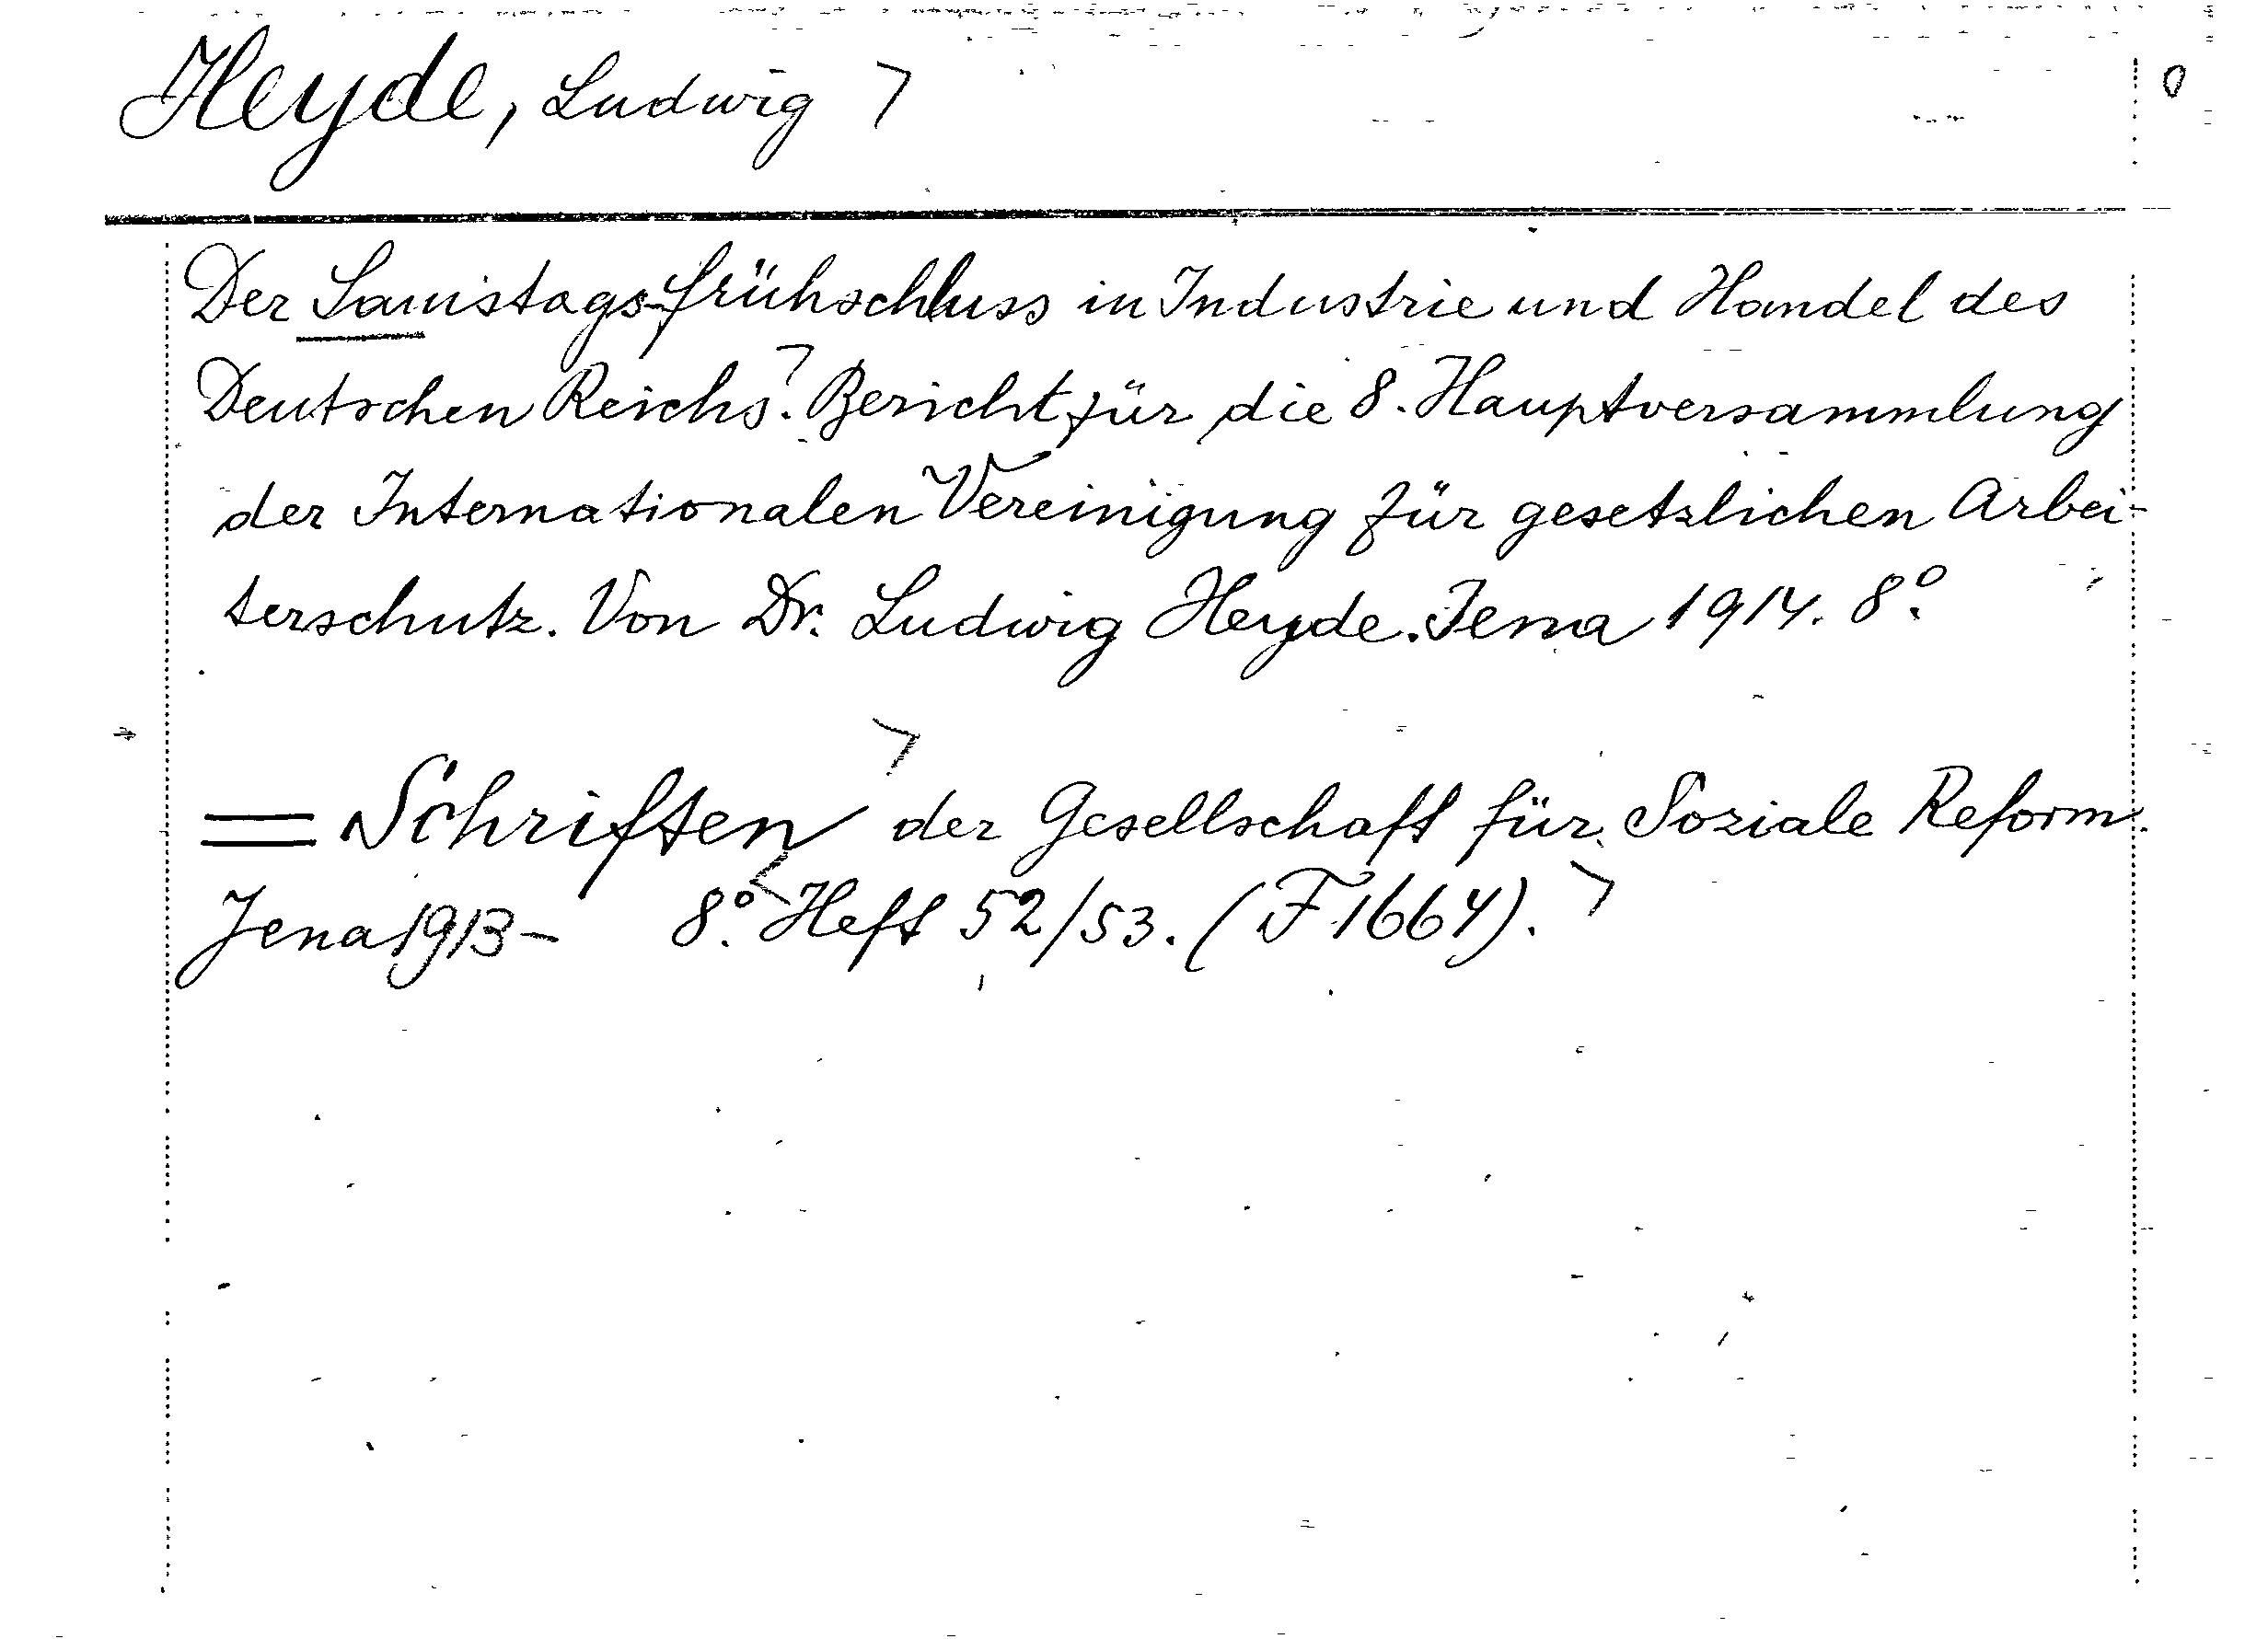 Heyde, Ludwig
Der Samstags-frühschluss in Industrie und Handel des
Deutschen Reichs. Bericht für die 8. Hauptversammlung
der Internationalen Vereinigung für gesetzlichen Arbei-
terschutz. Von Dr. Ludwig Heyde. Jena 1914. 8°.
= Schriften der Gesellschaft für Soziale Reform.
Jena 1913- 8°. Heft 52/53. (F 1664).